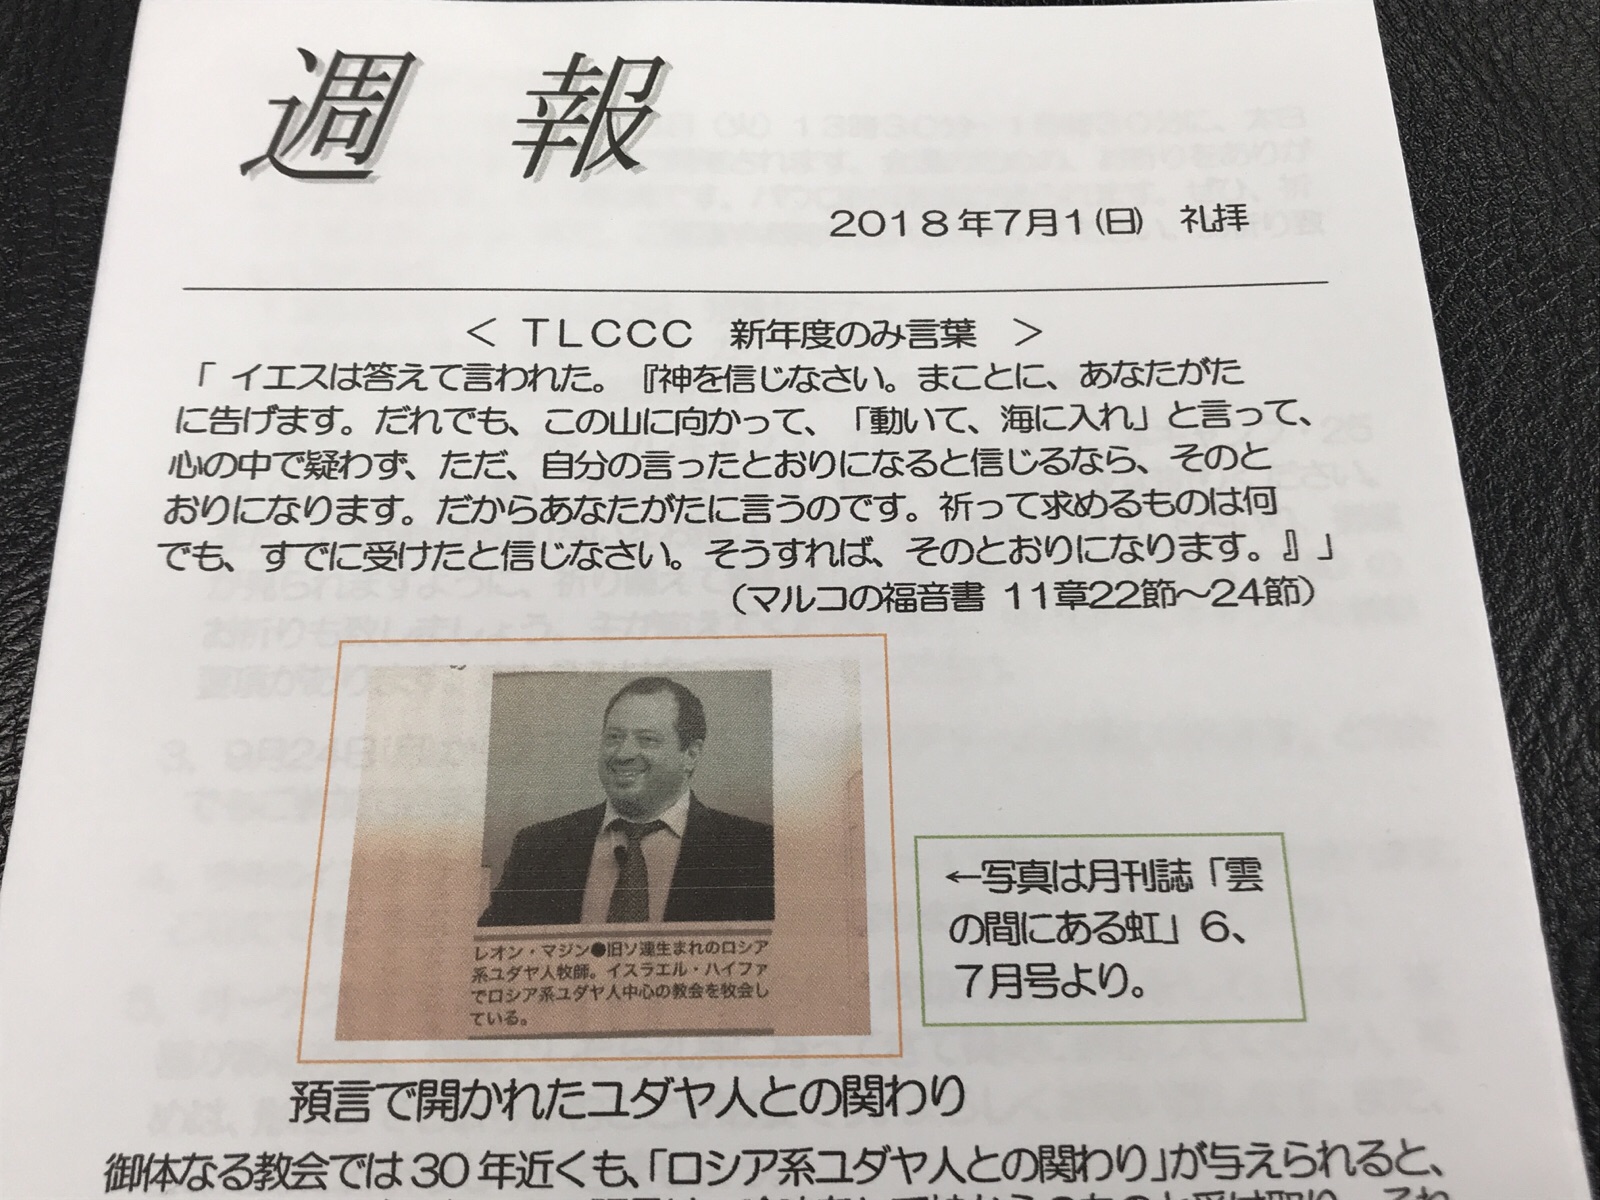 週 報
2018年7月1(日) 礼拝
＜ TLCCC 新年度のみ言葉 ＞
「 イエスは答えて言われた。『神を信じなさい。まことに、あなたがた
に告げます。だれでも、この山に向かって、「動いて、海に入れ」と言って、
心の中で疑わず、ただ、自分の言ったとおりになると信じるなら、そのと
おりになります。だからあなたがたに言うのです。祈って求めるものは何
でも、すでに受けたと信じなさい。そうすれば、そのとおりになります。』」
（マルコの福音書 11章22節～24節）
レオン・マジン●旧ソ連生まれのロシア
系ユダヤ人牧師。イスラエル・ハイファ
でロシア系ユダヤ人中心の教会を牧会し
ている。
←写真は月刊誌「雲
の間にある虹」6、
7月号より。
預言で開かれたユダヤ人との関わり
御体なる教会では30年近くも、「ロシア系ユダヤ人との関わり」が与えられると、